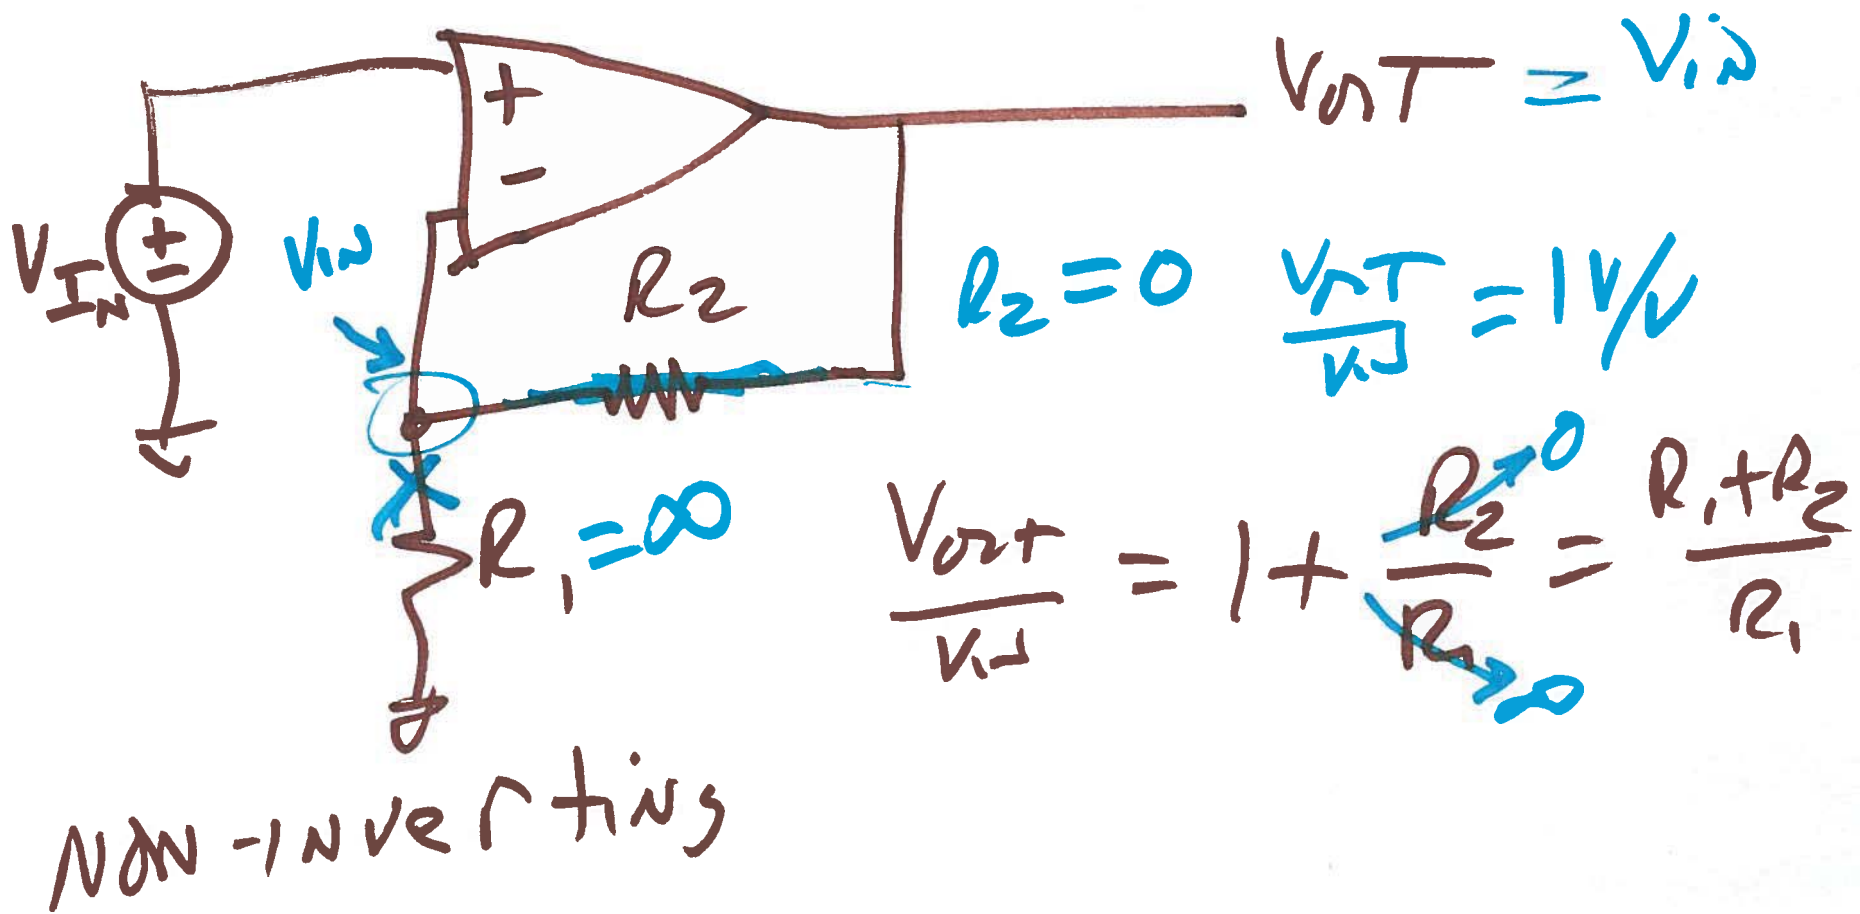 VOUT = Vin
+
-
VIN
+
-
VIN
R2
R2 = 0
VOUT/Vin = 1 V/V
R1 = ∞
Vout/Vin = 1 + R2/R1 = (R1+R2)/R1
0
∞
NON-INVerTiNg